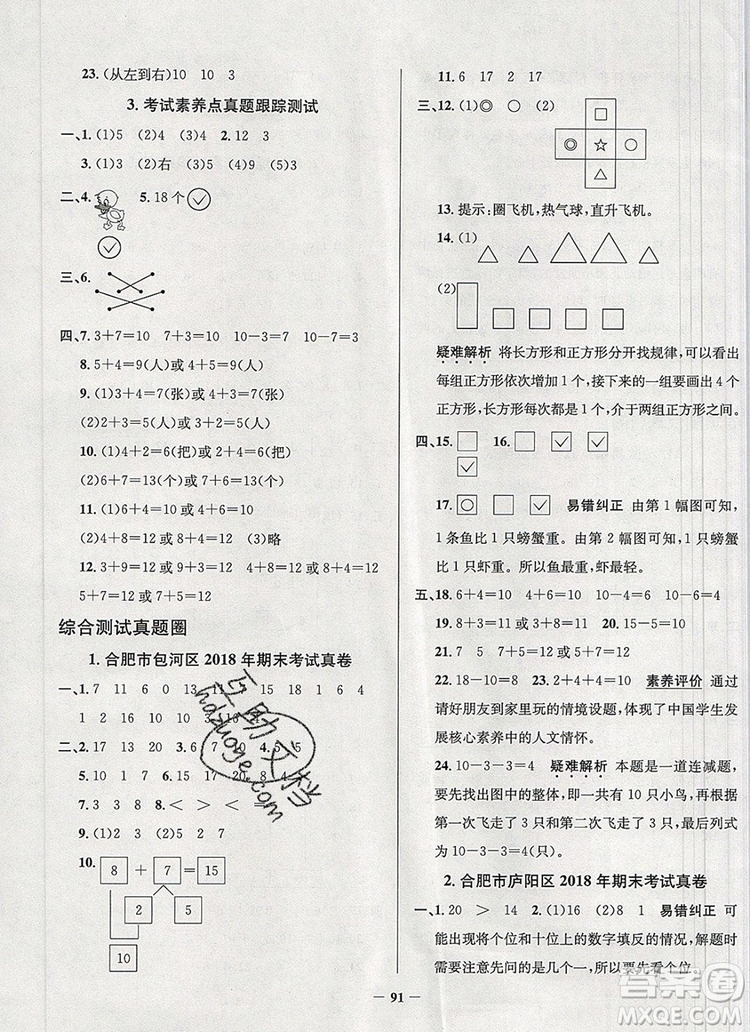 23.(从左到右)10 10 3
3. 考试素养点真题跟踪测试
一、1.(1)5 (2)4 (3)4 2.12 3
3.(1)5 (2)右 (3)1 (4)5 (5)9 (6)1 3
二、4. 5.18个
三、6.
四、7.3+7=10 7+3=10 10-3=7 10-7=3
8.5+4=9(人)或4+5=9(人)
9.(1)3+4=7(张)或4+3=7(张)
(2)2+3=5(人)或3+2=5(人)
10.(1)4+2=6(把)或2+4=6(把)
(2)6+7=13(个)或7+6=13(个)
11.(1)6+4=10或4+6=10
(2)4+8=12或8+4=12 (3)略
12.3+9=12或9+3=12或7+5=12或
5+7=12
综合测试真题圈
1. 合肥市包河区2018年期末考试真卷
一、1.7 11 6 0 13 7 15 18 1 6 4
1 2 16 10 9 10 13 12 19
二、2.17 20 3.6 9 20 8 4.5 5
5.10 8 9 6.15 17 20 8 4
7.3 3 8 8.< > < >
9.(1)1 (2)2 (3)4 (4)5
10. 8 + 7 = 15
2 5
10
11.6 17 2 7
三、12.(1)◎ ○ (2) □
◎ ☆ ○
△
13. 提示:圈飞机,热气球,直升飞机。
14.(1)
(2)
疑难解析 将长方形和正方形分开找规律,可以看出
每组正方形依次增加1个,接下来的一组要画出4个
正方形,长方形每次都是1个,介于两组正方形之间。
四、15.□ 16.□ ✓
✓
17.○ □ ✓ 易错纠正 由第1幅图可知,
1条鱼比1只螃蟹重。由第2幅图可知,1只螃蟹比
1只虾重。所以鱼最重,虾最轻。
五、18.6+4=10 19.7+8=15 15-8=7
20.8+3=11或3+8=11 8-3=5
21.7 5 7+5=12或5+7=12
22.18-10=8 23.2+2=4 素养评价 通过
请好朋友到家里玩的情境设题,体现了中国学生发
展核心素养中的人文情怀。
24.10-3-3=4 疑难解析 本题是一道连减题,
要先找出图中的整体,即一共有10只小鸟,再根据
第一次飞走了3只和第二次飞走了3只,最后列式
为10-3-3=4(只)。
2. 合肥市庐阳区2018年期末考试真卷
一、1.20 > 14 2.(1)16 (2)8 1 易错纠正 可
能出现将个位和十位上的数字填反的情况,解题时
需要注意先问的是几个一,所以要先看个位。
— 91 —
互助文档
hdzuoye.com
答案圈
MXQE.COM